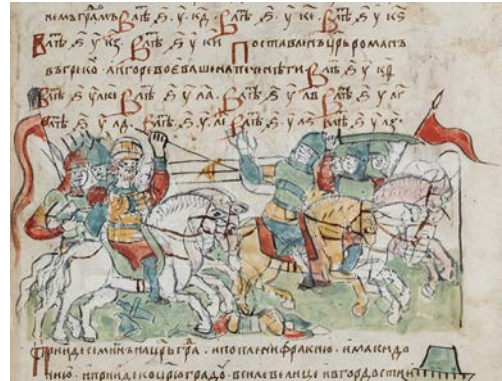 немъ грамъ. В лѣ҃т. ѕ҃. у҃. кд҃. В лѣ҃т. ѕ҃. у҃. ке҃. В лѣ҃т. ѕ҃. у҃. кѕ҃
В лѣ҃т. ѕ҃. у҃. кз҃. В лѣ҃т. ѕ҃. у҃. ки҃ Поставленъ цр҃ь романъ
въ греко. А игорь воеваше на печенѣги. В лѣ҃т. ѕ҃. у҃. кѳ҃
В лѣ҃т. ѕ҃. у҃. В лѣ҃т. ѕ҃. у҃. ла҃. В лѣ҃т. ѕ҃. у҃. лв҃ В лѣ҃т. ѕ҃. у҃. лг҃
В лѣ҃т. ѕ҃. у҃. лд҃. В лѣ҃т. ѕ҃. у҃. ле҃ В лѣ҃т. ѕ҃. у҃. лѕ҃ В лѣ҃т. ѕ҃. у҃. лз҃
Прииде семинъ на цр҃ьгра. и поплени фракию. и макидо
нию. и прииде ко цр҃юградѹ. в силе велице и в гордости